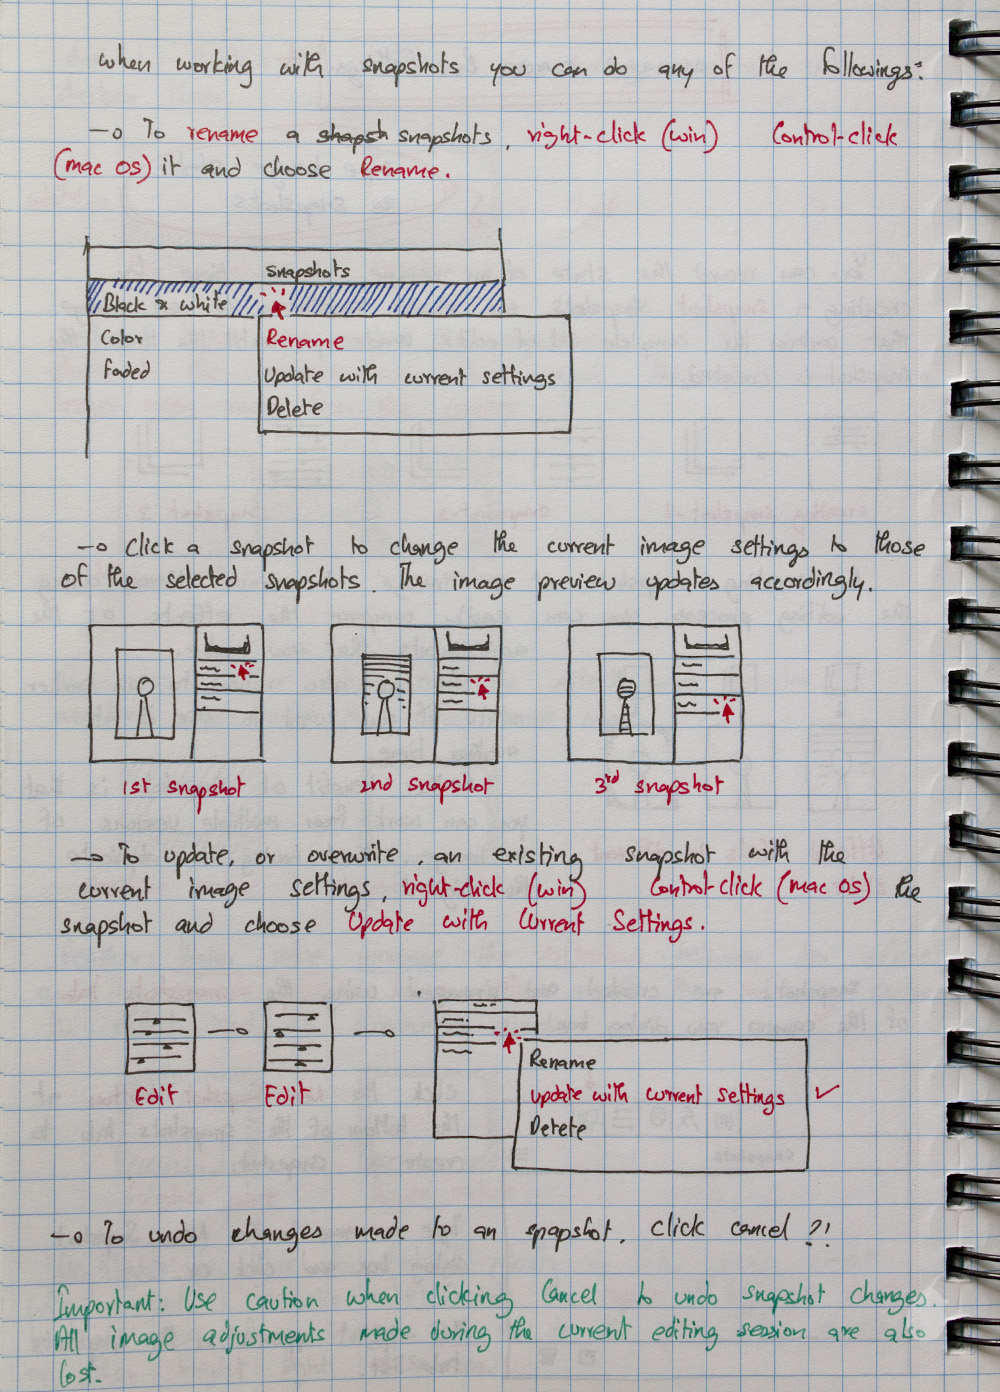 when working with snapshots you can do any of the followings:
—o To rename a snapshots, right-click (win) Control-click
(mac OS) it and choose Rename.
snapshots
Black & white
Color
Faded
Rename
Update with current settings
Delete
—o Click a snapshot to change the current image settings to those
of the selected snapshots. The image preview updates accordingly.
1st snapshot
2nd snapshot
3rd snapshot
—o To update, or overwrite, an existing snapshot with the
current image settings, right-click (win) Control-click (mac OS) the
snapshot and choose Update with Current Settings.
Edit
Edit
Rename
Update with current settings ✓
Delete
—o To undo changes made to an spapshot, click cancel ?!
Important: Use caution when clicking Cancel to undo snapshot changes.
All image adjustments made during the current editing session are also
lost.